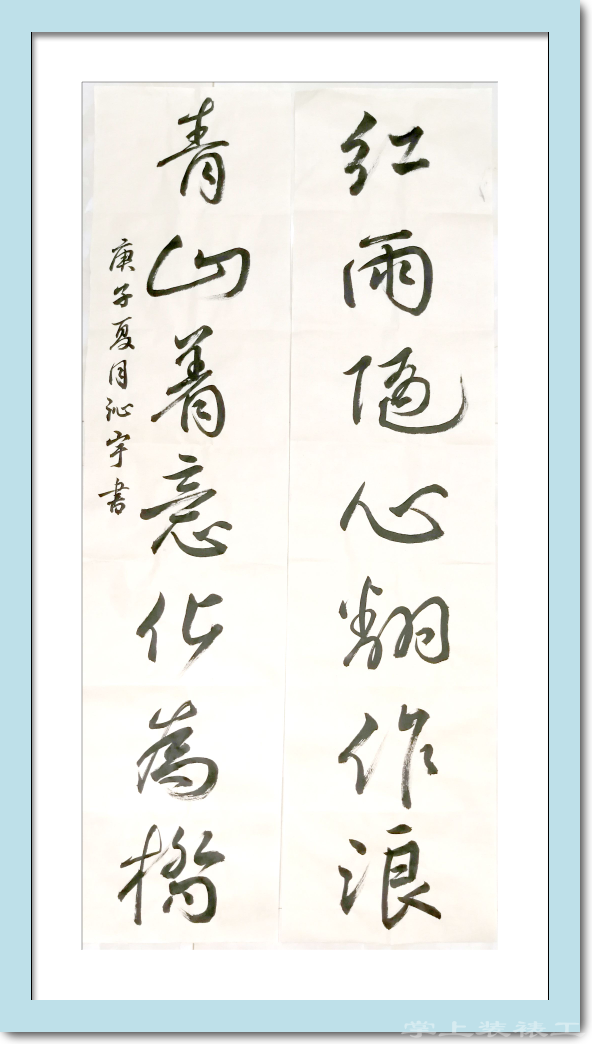 红雨随心翻作浪
青山着意化為橋
庚子夏月沁宇書
掌上装裱工